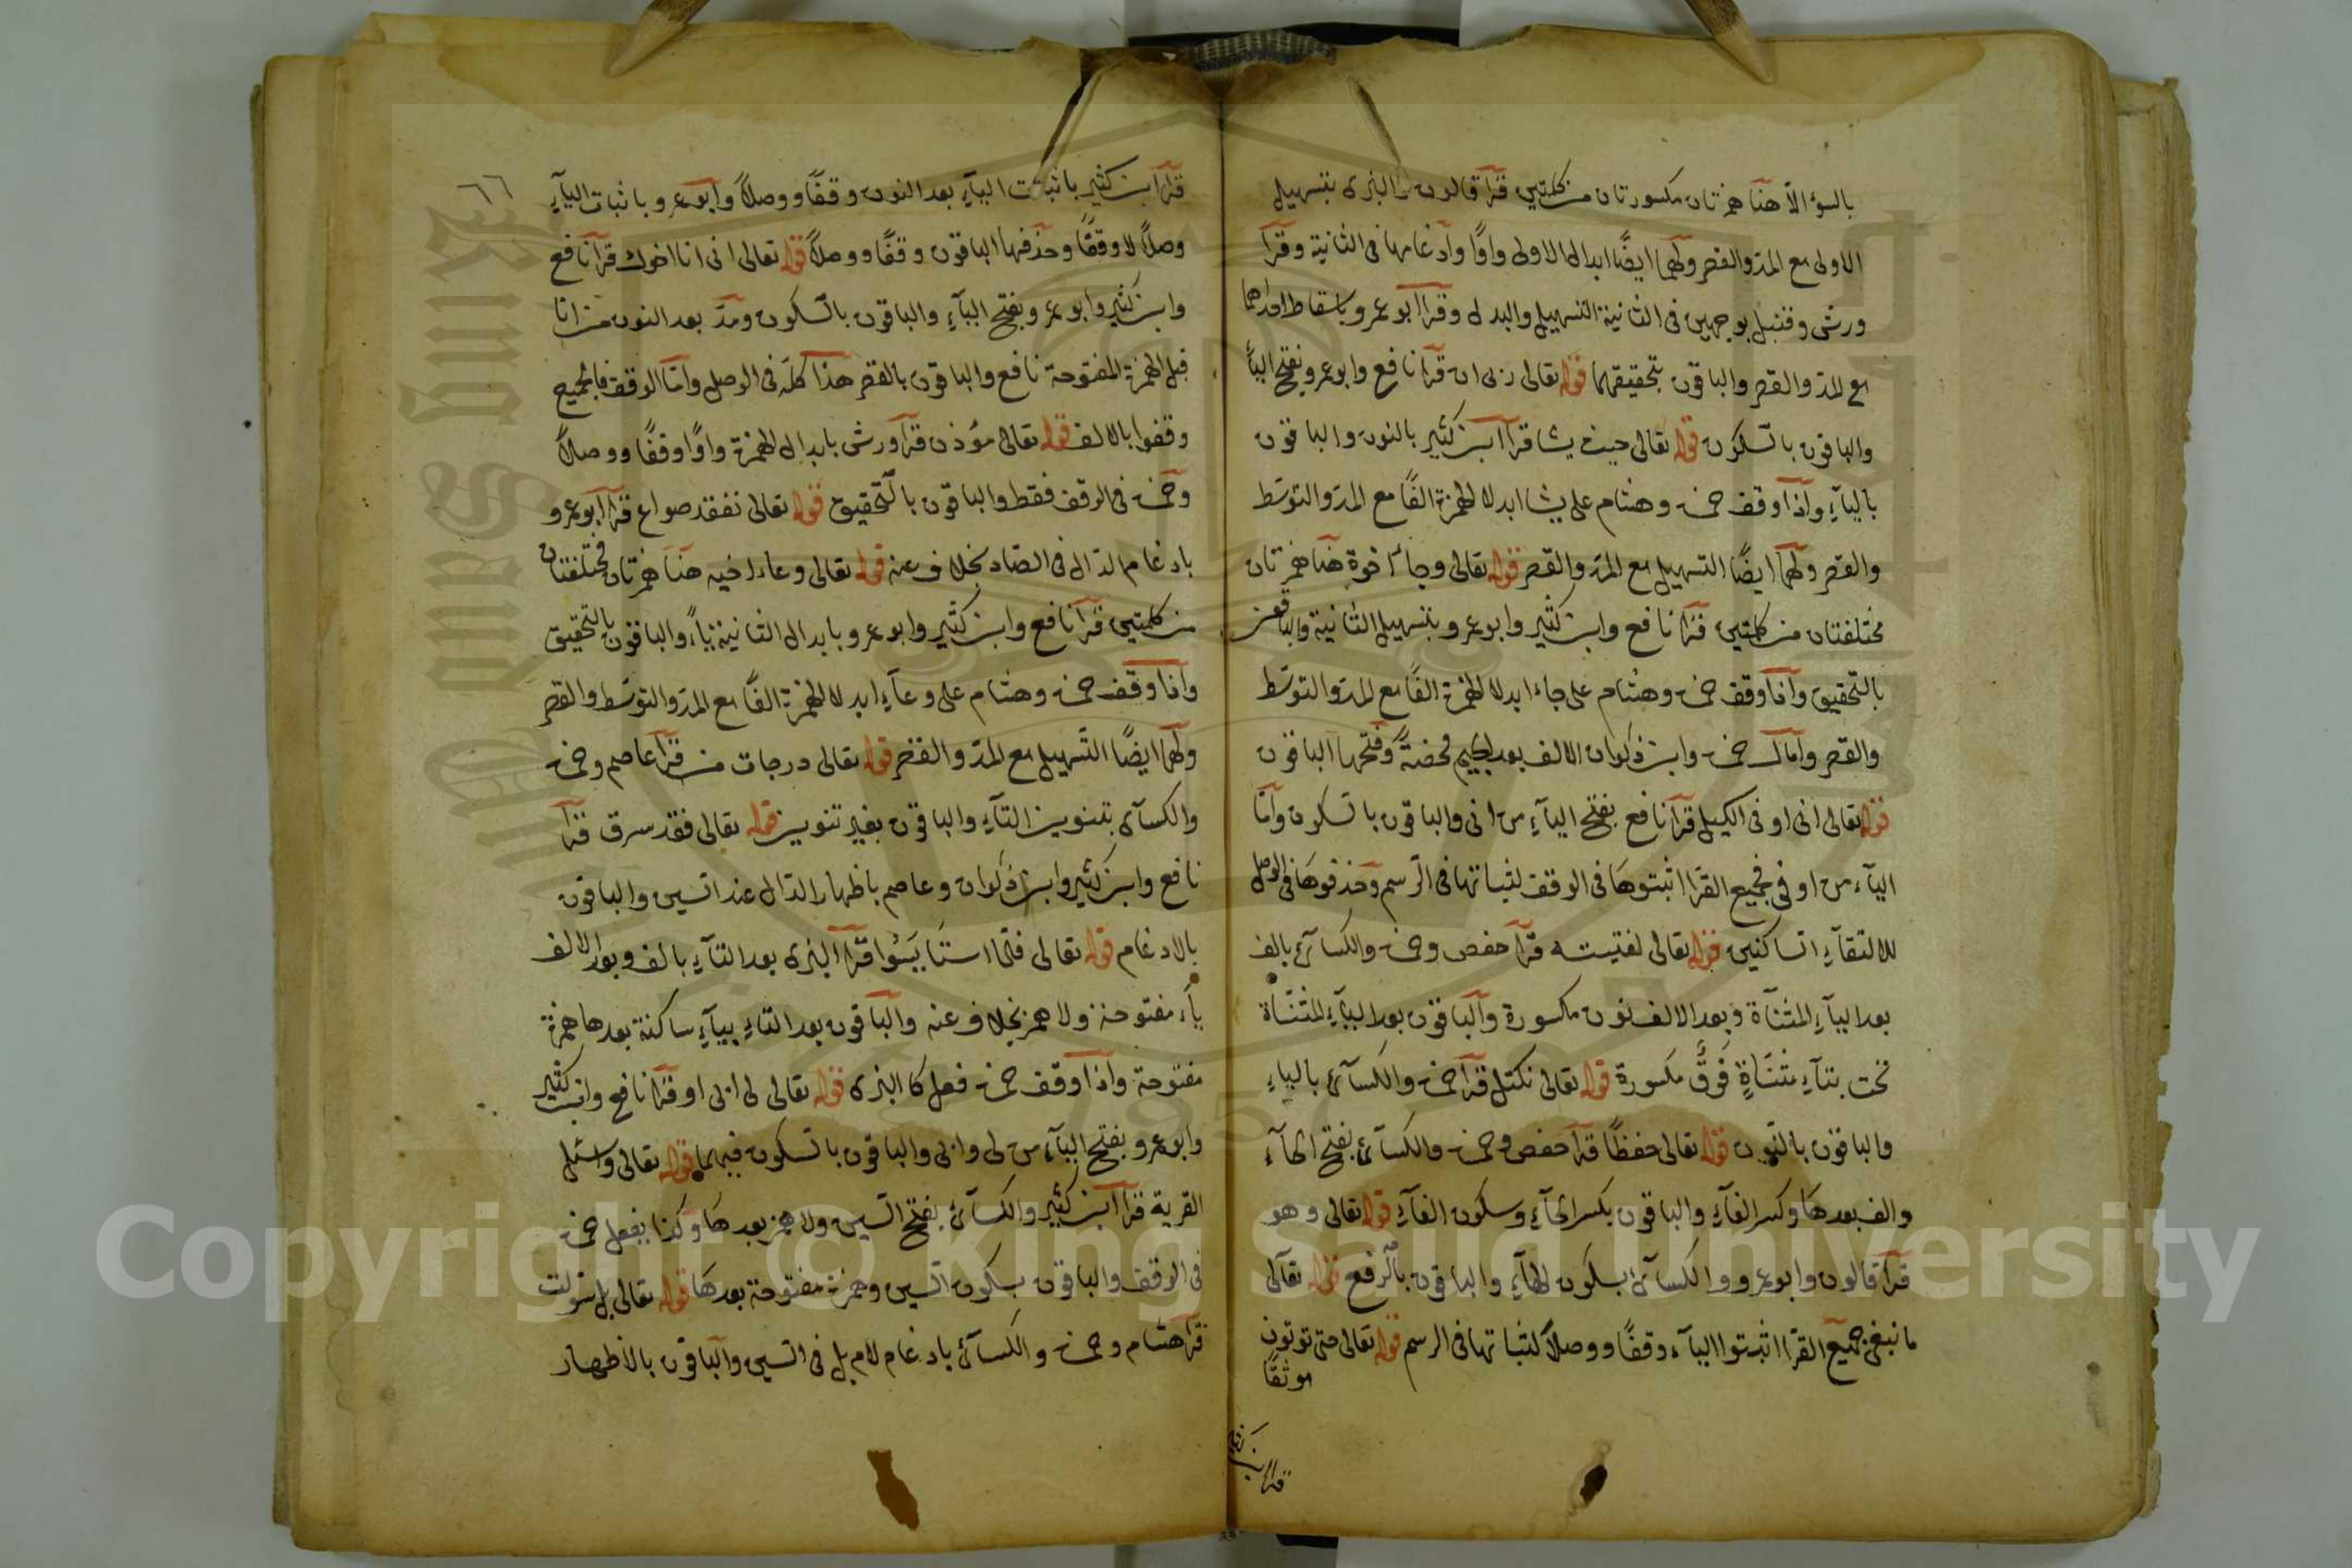 بالسؤ الاّ هنا همزتان مكسورتان من كلمتين قرأ قالون والبزى بتسهيل
الاولى مع المدّ والقصر ولهما ايضًا ابدال الاولى واوًا وادغامها فى الثانية وقرأ
ورش وقنبل بوجهين فى الثانية التسهيل والبدل وقرأ ابو عمرو باسقاط احداهما
مع المدّ والقصر والباقون بتحقيقهما قوله تعالى ربى ان قرأ نافع وابو عمرو بفتح الياء
والباقون بالسكون قوله تعالى حيث يشا قرأ ابن كثير بالنون والباقون
بالياء واذا وقف حمزة وهشام على يشا ابدلا الهمزة الفًا مع المدّ والتوسّط
والقصر ولهما ايضًا التسهيل مع المدّ والقصر قوله تعالى وجاء اخوة هنا همزتان
مختلفتان من كلمتين قرأ نافع وابن كثير وابو عمرو بتسهيل الثانية والباقون
بالتحقيق واذا وقف حمزة وهشام على جاء ابدلا الهمزة الفًا مع المدّ والتوسّط
والقصر وامال حمزة وابن ذكوان الالف بعد الجيم محضةً وفتحها الباقون
قوله تعالى انى اوفى الكيل قرأ نافع بفتح الياء من انى والباقون بالسكون وامّا
الياء من اوفى فجميع القرّا اثبتوها فى الوقف لثباتها فى الرسم وحذفوها فى الوصل
لالتقاء الساكنين قوله تعالى لفتيته قرأ حفص وحمزة والكسائى بالف
بعد الياء المثنّاة وبعد الالف نون مكسورة والباقون بعد الياء المثنّاة
تحت بتاء مثنّاةٍ فوق مكسورة قوله تعالى نكتل قرأ حمزة والكسائى بالياء
والباقون بالنّون قوله تعالى حفظًا قرأ حفص وحمزة والكسائى بفتح الحاء
والف بعدها وكسر الفاء والباقون بكسر الحاء وسكون الفاء قوله تعالى وهو
قرأ قالون وابو عمرو والكسائى بسكون الهاء والباقون بالرفع قوله تعالى
ما نبغى جميع القرّا اثبتوا الياء وقفًا ووصلاً لثباتها فى الرسم قوله تعالى حتى تؤتون
موثقًا
٦٦
قرأ ابن كثير باثبات الياء بعد النون وقفًا ووصلاً وابو عمرو باثبات الياء
وصلاً لا وقفًا وحذفها الباقون وقفًا ووصلاً قوله تعالى انى انا اخوك قرأ نافع
وابن كثير وابو عمرو بفتح الياء والباقون بالسكون ومدّ بعد النون من انا
قبل الهمزة المفتوحة نافع والباقون بالقصر هذا كلّه فى الوصل وامّا الوقف فالجميع
وقفوا بالالف قوله تعالى مؤذن قرأ ورش بابدال الهمزة واوًا وقفًا ووصلاً
وحمزة فى الوقف فقط والباقون بالتّحقيق قوله تعالى نفقد صواع قرأ ابو عمرو
بادغام الدّال فى الصّاد بخلاف عنه قوله تعالى وعاء اخيه هنا همزتان مختلفتان
من كلمتين قرأ نافع وابن كثير وابو عمرو بابدال الثانية ياءً والباقون بالتحقيق
واذا وقف حمزة وهشام على وعاء ابدلا الهمزة الفًا مع المدّ والتوسّط والقصر
ولهما ايضًا التّسهيل مع المدّ والقصر قوله تعالى درجات من قرأ عاصم وحمزة
والكسائى بتنوين التاء والباقون بغير تنوين قوله تعالى فقد سرق قرأ
نافع وابن كثير وابن ذكوان وعاصم باظهار الدّال عند السّين والباقون
بالادغام قوله تعالى فلمّا استَايَسُوا قرأ البزى بعد التاء بالف وبعد الالف
ياء مفتوحة ولا همز بخلاف عنه والباقون بعد التاء بياء ساكنة بعدها همزة
مفتوحة واذا وقف حمزة فعل كالبزى قوله تعالى لى ابى او قرأ نافع وابن كثير
وابو عمرو بفتح الياء من لى وابى والباقون بالسكون فيهما قوله تعالى وسئل
القرية قرأ ابن كثير والكسائى بفتح السّين ولا همز بعدها وكذا يفعل حمزة
فى الوقف والباقون بسكون السّين وهمزة مفتوحة بعدها قوله تعالى بل سولت
قرأ هشام وحمزة والكسائى بادغام لام بل فى السّين والباقون بالاظهار
Copyright © King Saud University